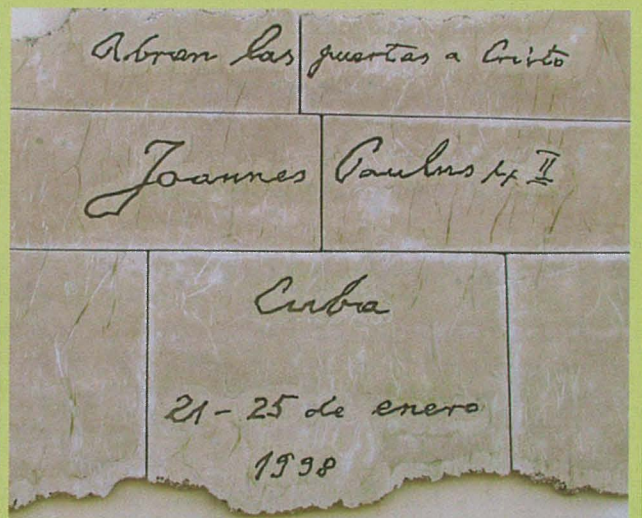 Abran las puertas a Cristo
Joannes Paulus pp II
Cuba
21-25 de enero
1998